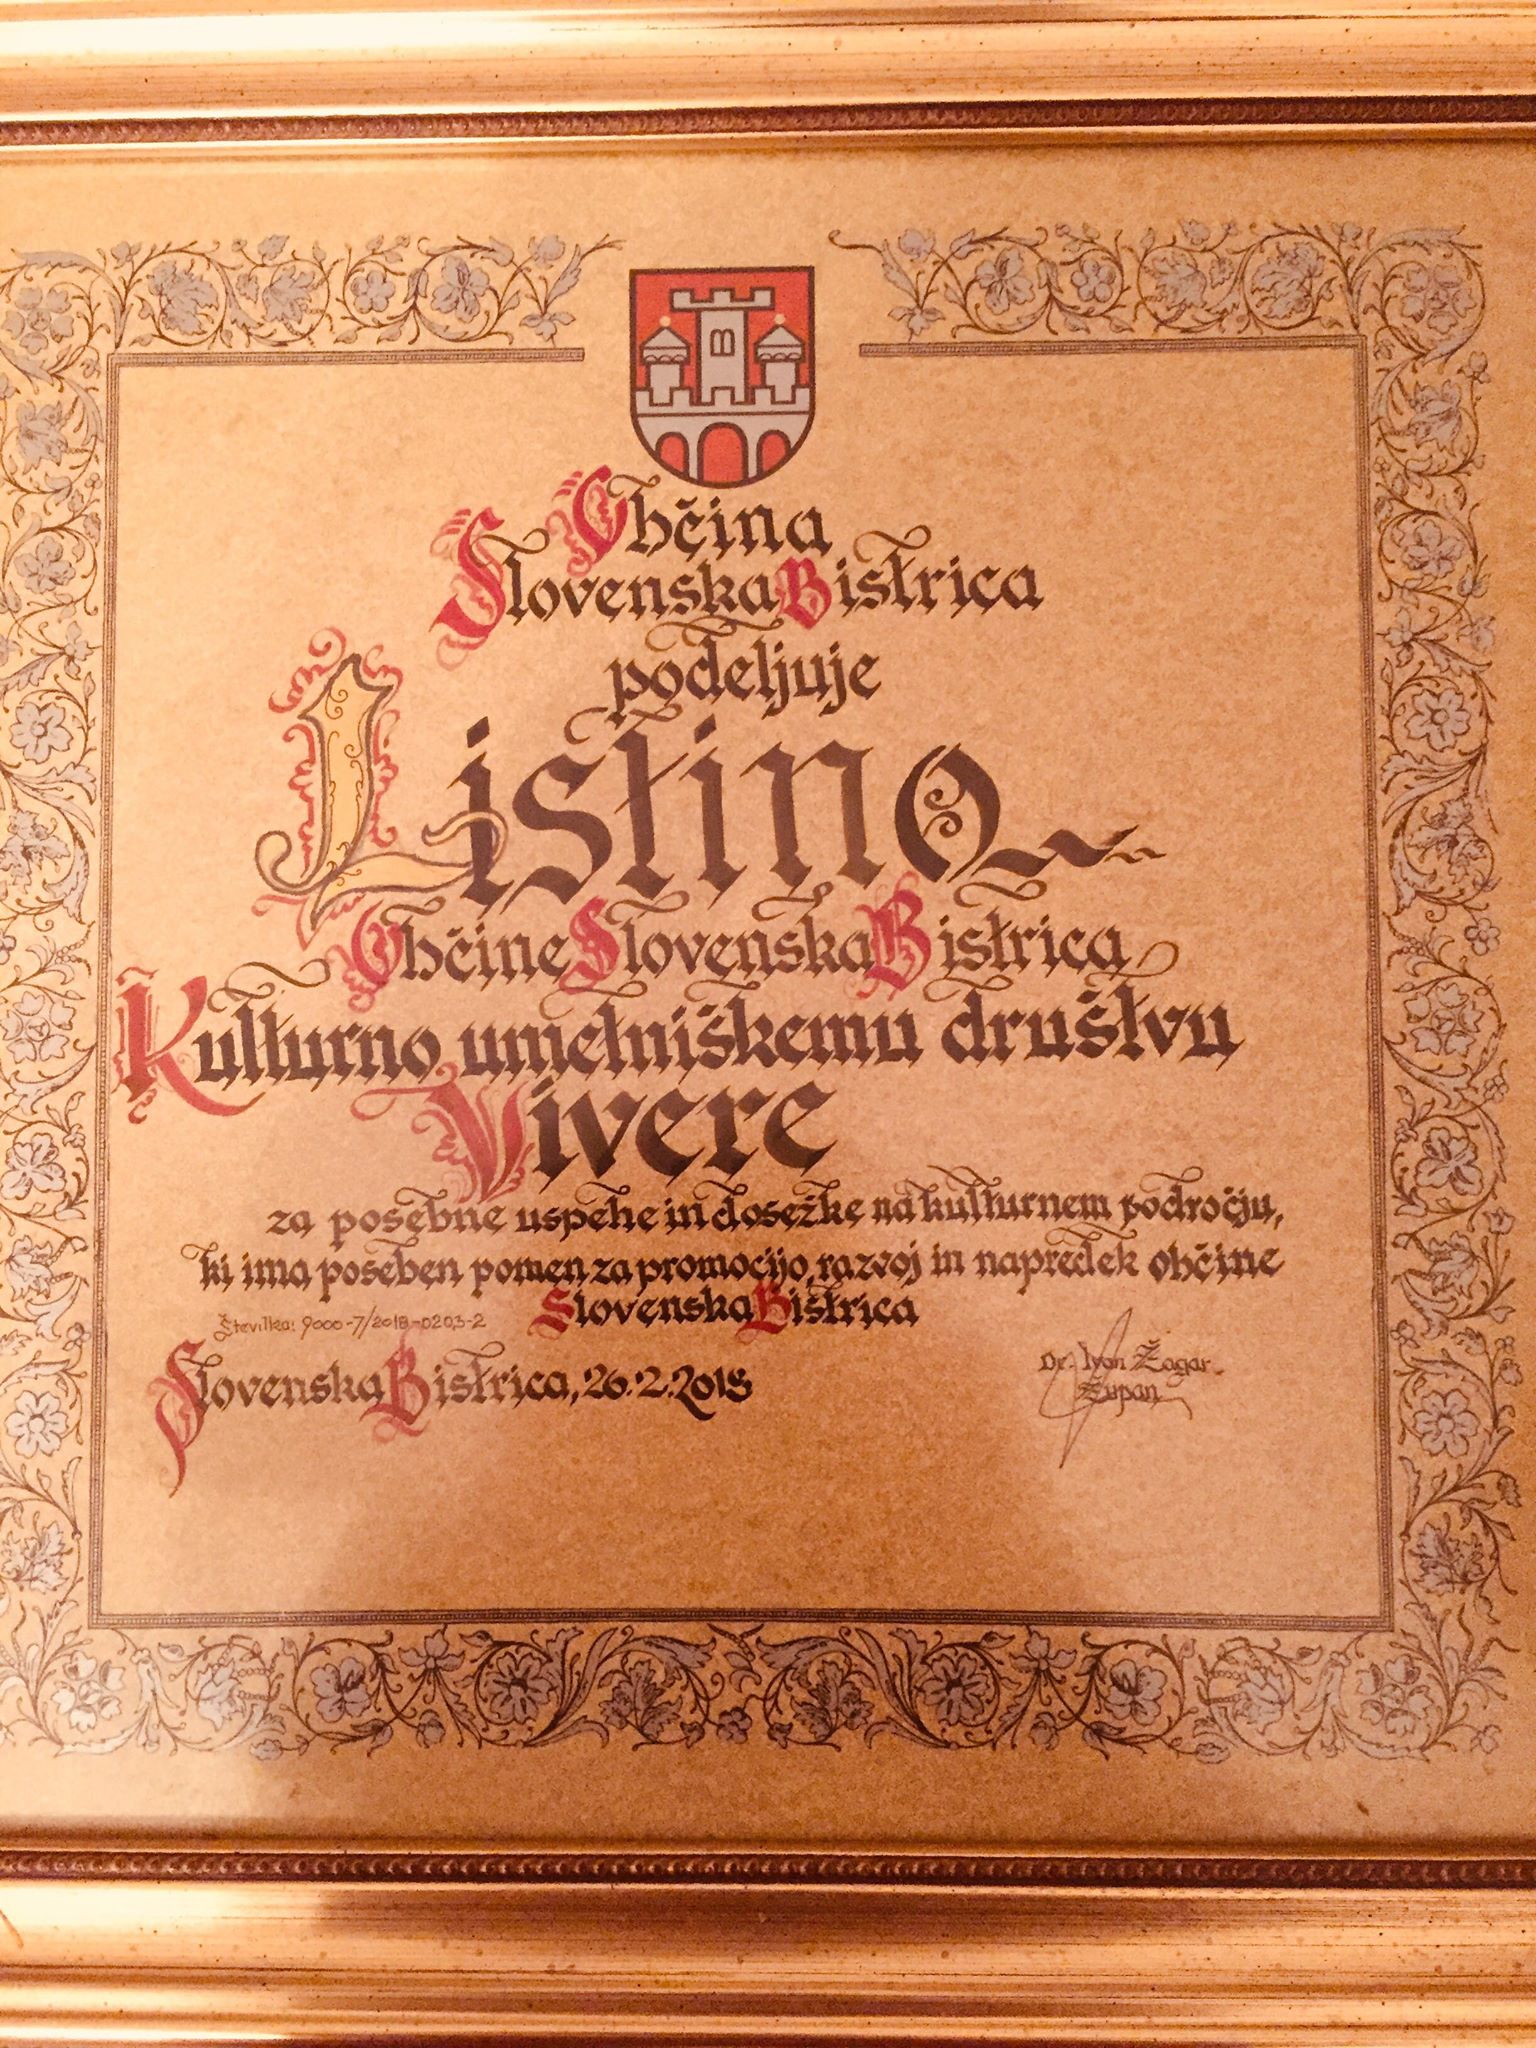 Občina
Slovenska Bistrica
podeljuje
Listino
Občine Slovenska Bistrica
Kulturno umetniškemu društvu
Vivere
za posebne uspehe in dosežke na kulturnem področju,
ki ima poseben pomen za promocijo, razvoj in napredek občine
Slovenska Bistrica
Številka: 9000-7/2018-0203-2
Slovenska Bistrica, 26.2.2018
Dr. Ivan Žagar
Župan